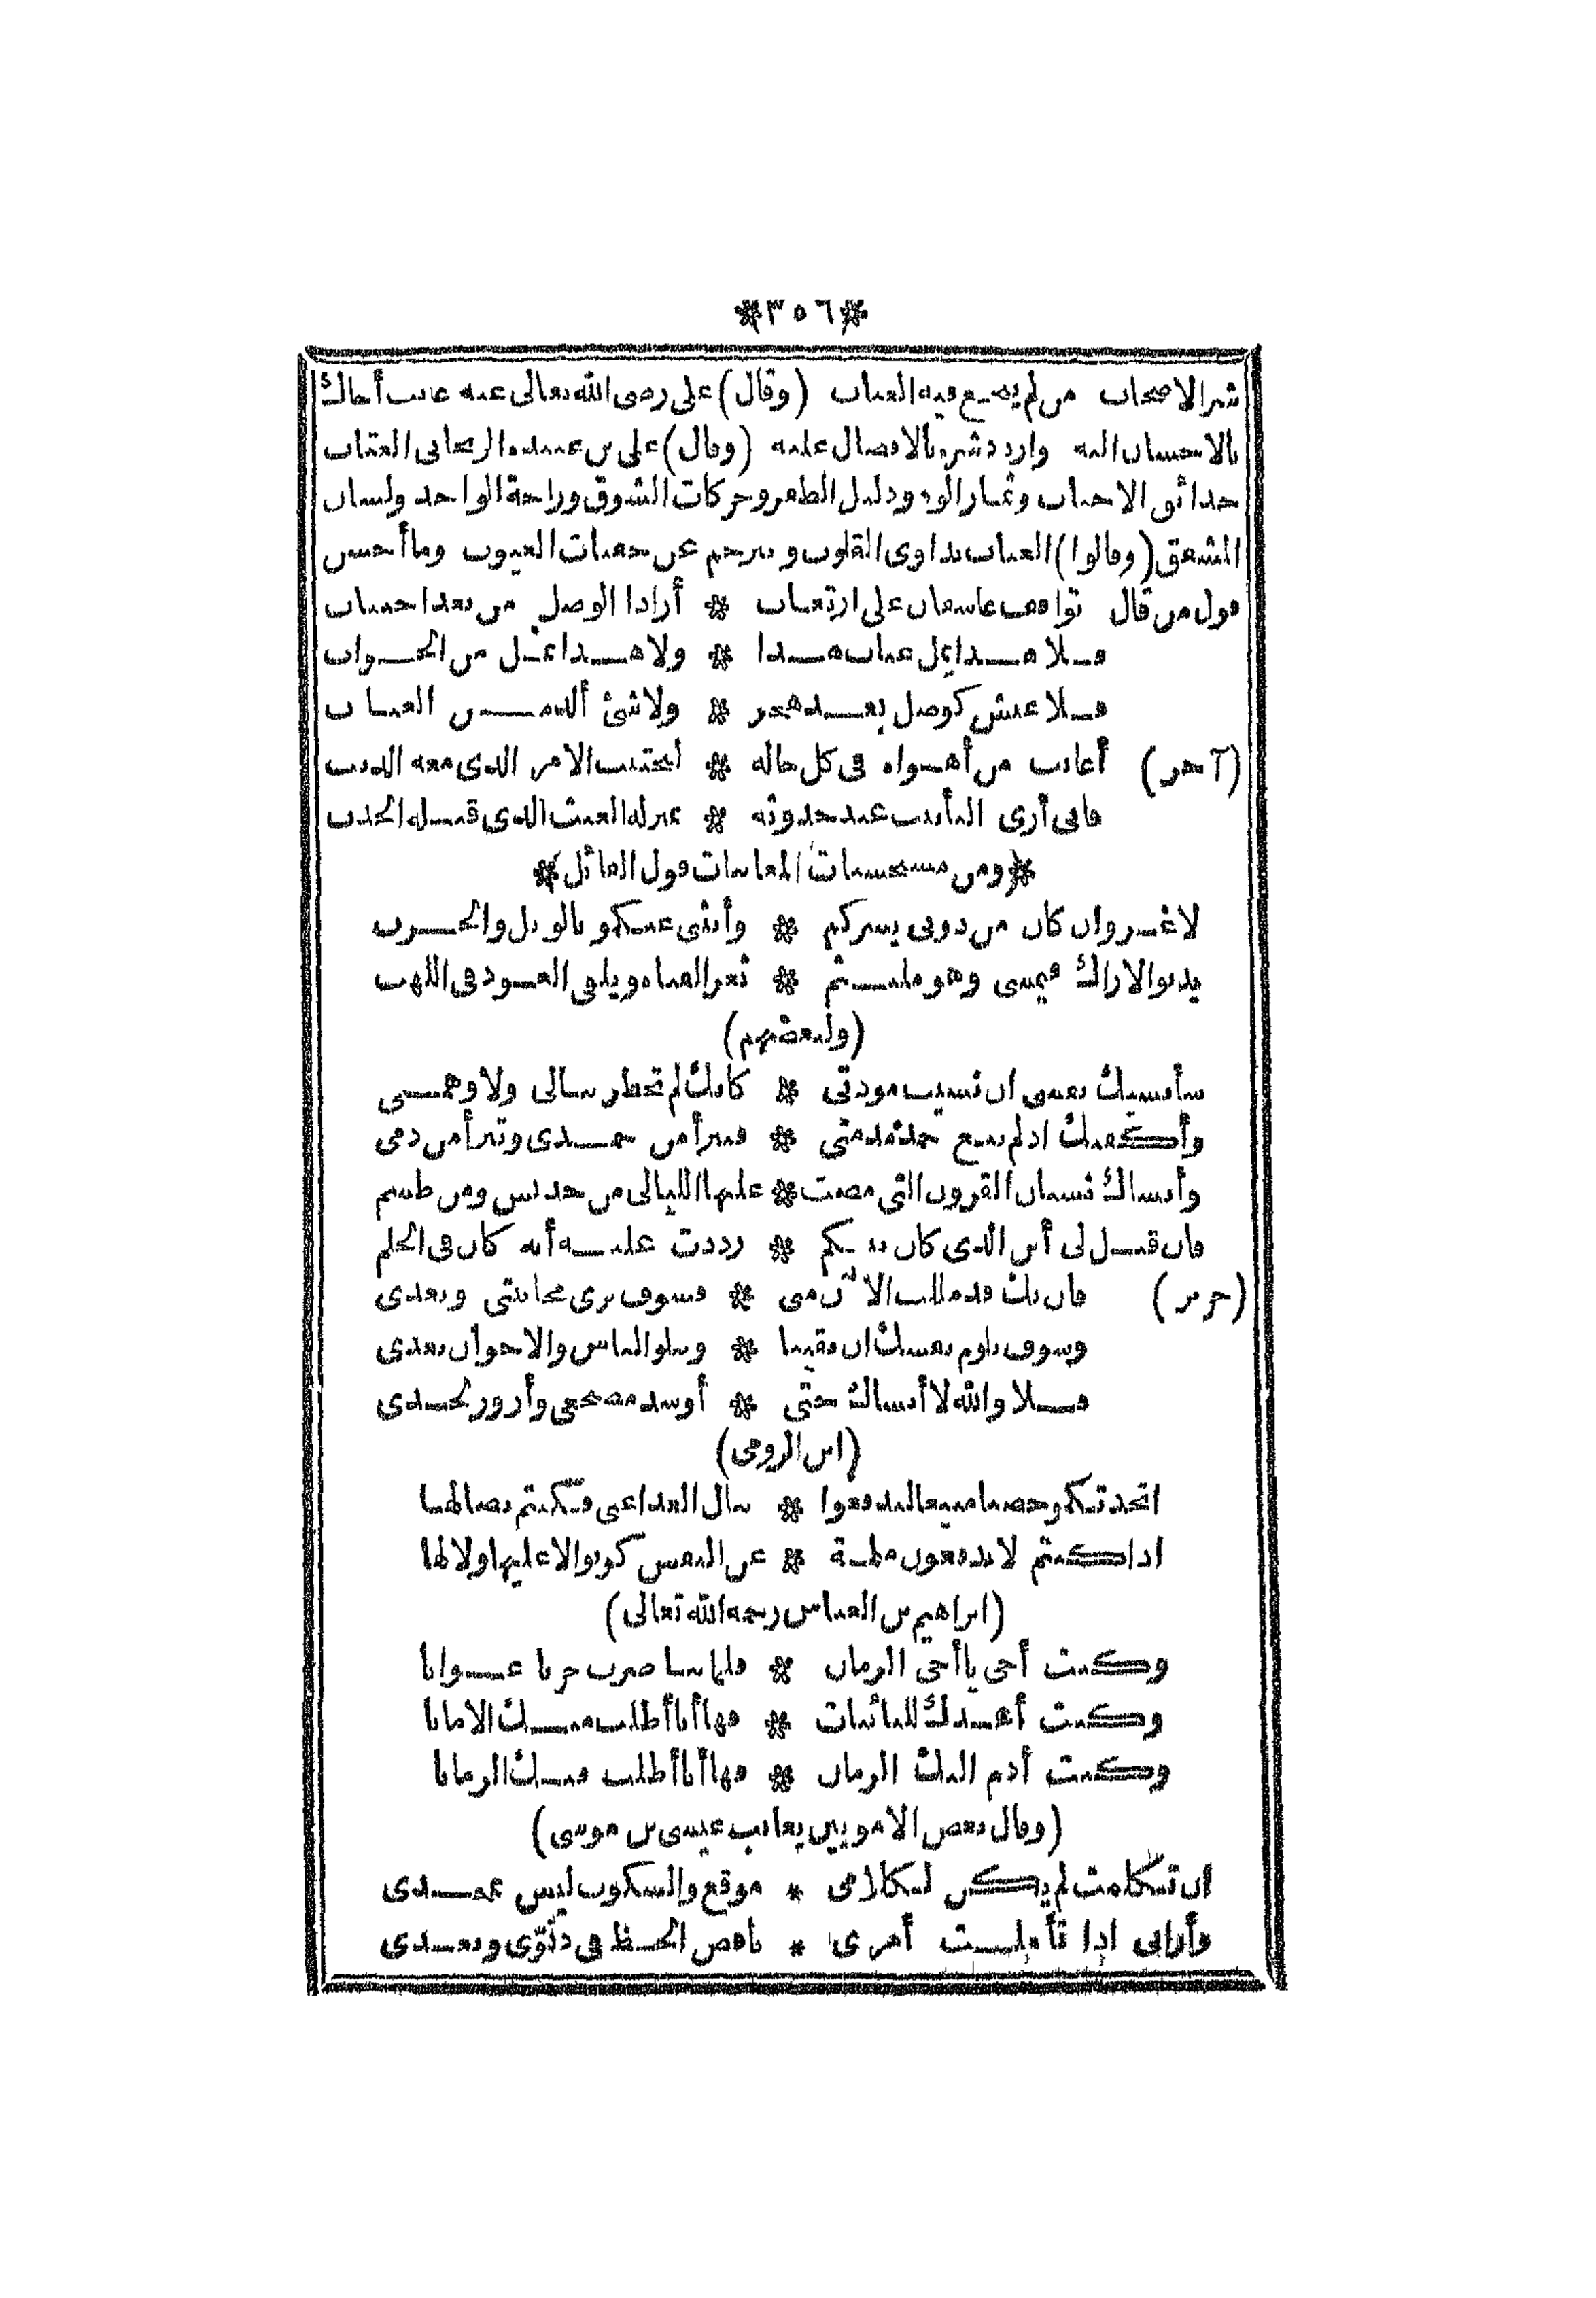 *٣٥٦*
شر الاصحاب من لم ينجع فيه العتاب (وقال) على رضى الله تعالى عنه عاتب أخاك
بالاحسان اليه واردد شره بالافضال عليه (وقال) على بن عبيدة الريحانى العتاب
حدائق الاحباب وثمار الود ودليل الظفر وحركات الشوق وراحة الواجد ولسان
المشفق (وقالوا) العتاب يداوى القلوب ويترجم عن خفيات العيوب وما أحسن
قول من قال تواقف عاشقان على ارتقاب * أرادا الوصل من بعد اجتناب
فلا هذا يمل عتاب هذا * ولا هذا يمل من الجواب
فلا عيش كوصل بعد هجر * ولا شئ ألذ من العتاب
(آخر) أعاتب من أهواه فى كل حالة * ليجتنب الامر الذى معه الذنب
فانى أرى التأنيب عند حدوثه * بمنزلة الغيث الذى قبله الجدب
*(ومن مستحسنات المعاتبات قول القائل)*
لا غرو ان كان من دونى يسركم * وأنثنى عنكمو بالويل والحرب
يدنو الاراك فيمسى وهو ملتثم * ثغر الفتاة ويلقى العود فى اللهب
(ولبعضهم)
سأنسيك نفسى ان نسيت مودتى * كانك لم تخطر ببالى ولا وهمى
وأكفيك اذ لم ترع حمدى
وأنساك نسيان القرون التى مضت * عليها الليالى من جديس ومن طسم
فان قيل لى أين الذى كان بينكم * رددت عليه أنه كان فى الحلم
(جرير) فان تك قد مللت الآن منى * فسوف ترى مجانبتى وبعدى
وسوف تلوم نفسك ان بقينا * وتبلو الناس والاخوان بعدى
فلا والله لا أنساك حتى * أوسد مضجعى وأزور لحدى
(ابن الرومى)
اتخذتكمو حصنا منيعا لتدفعوا * نبال العدا عنى فكنتم نصالها
اذا كنتم لا تدفعون ملمة * عن النفس كونوا لا عليها ولا لها
(ابراهيم بن العباس رحمه الله تعالى)
وكنت أخى باأخى الزمان * فلما نبا صرت حربا عوانا
وكنت أعدك للنائبات * فها أنا أطلب منك الامانا
وكنت أذم اليك الزمان * فها أنا أطلب فيك الزمانا
(وقال بعض الامويين يعاتب عيسى بن موسى)
ان تكلمت لم يكن لكلامى * موقع والسكوت ليس بمجدى
وأرانى اذا تأملت أمرى * ناقص الحظ فى دنوّى وبعدى